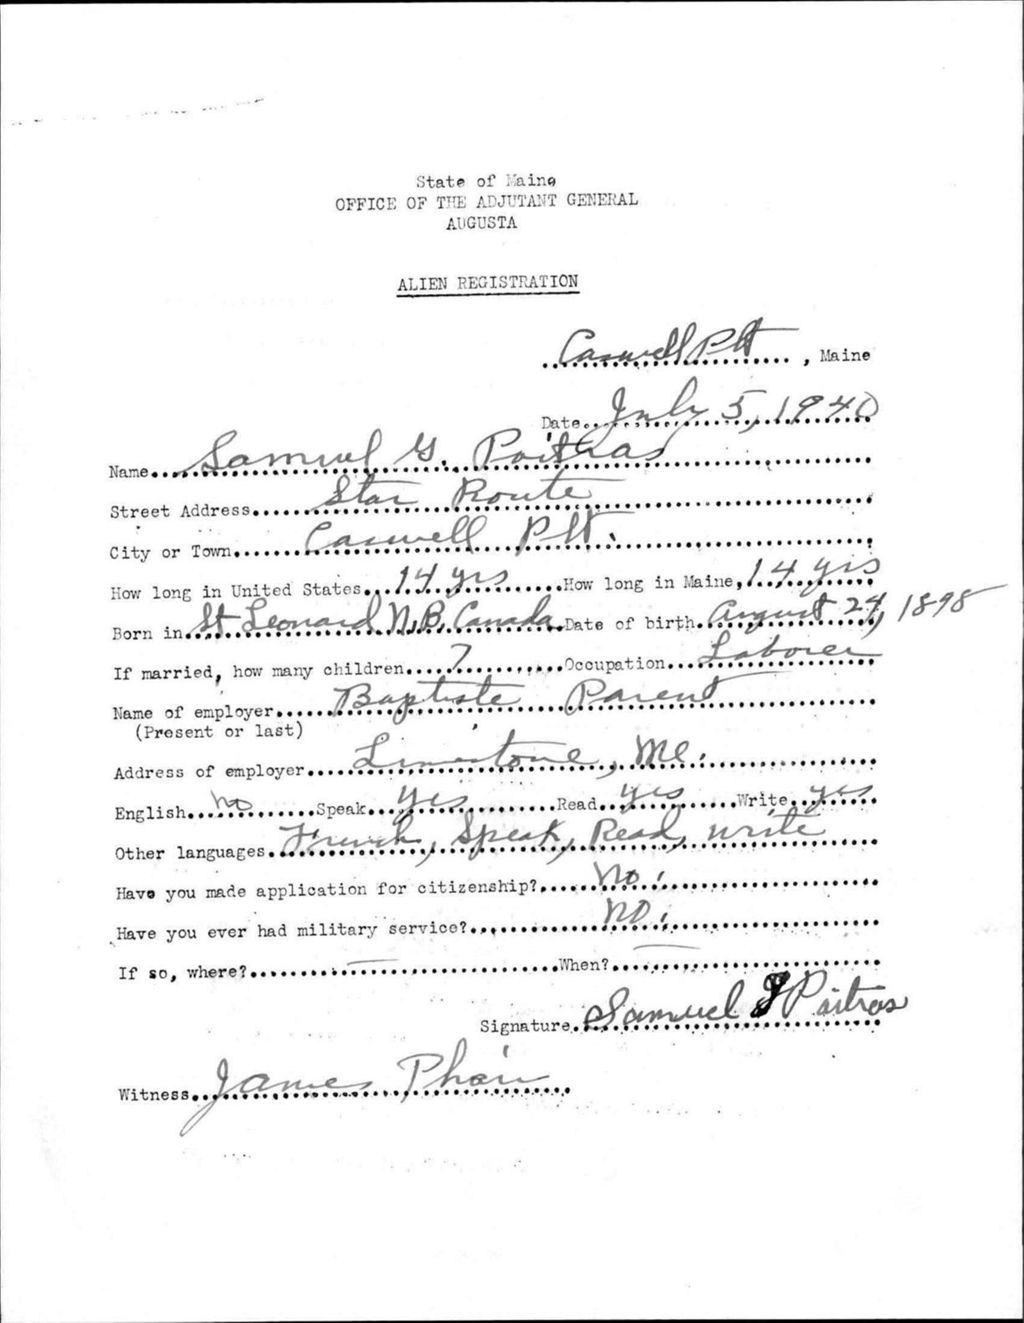 State of Maine
OFFICE OF THE ADJUTANT GENERAL
AUGUSTA
ALIEN REGISTRATION
Caswell Plt, Maine
Date July 5, 1940
Name Samuel G. Poitras
Street Address Star Route
City or Town Caswell Plt.
How long in United States 14 yrs How long in Maine, 14 yrs
Born in St Leonard N.B. Canada Date of birth August 24, 1898
If married, how many children 7 Occupation Laborer
Name of employer Baptiste Parent
(Present or last)
Address of employer Limestone, Me.
English no Speak yes Read yes Write yes
Other languages French, Speak, Read, write
Have you made application for citizenship? No.
Have you ever had military service? No.
If so, where? — When? —
Signature Samuel G Poitras
Witness James Phair